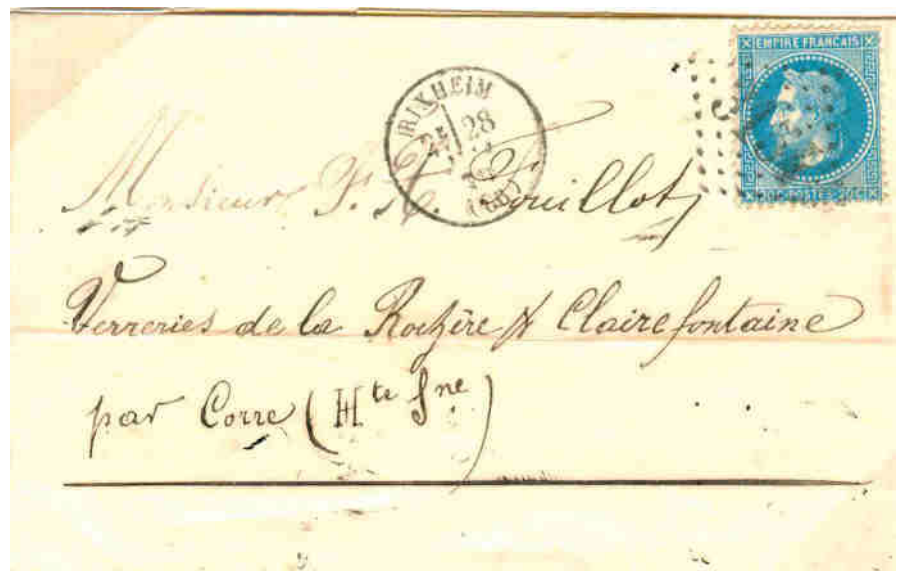 EMPIRE FRANÇAIS
RIXHEIM
28
(66)
Monsieur F. X. Fouillot
Verreries de la Rochère & Clairefontaine
par Corre (Hte Sne)